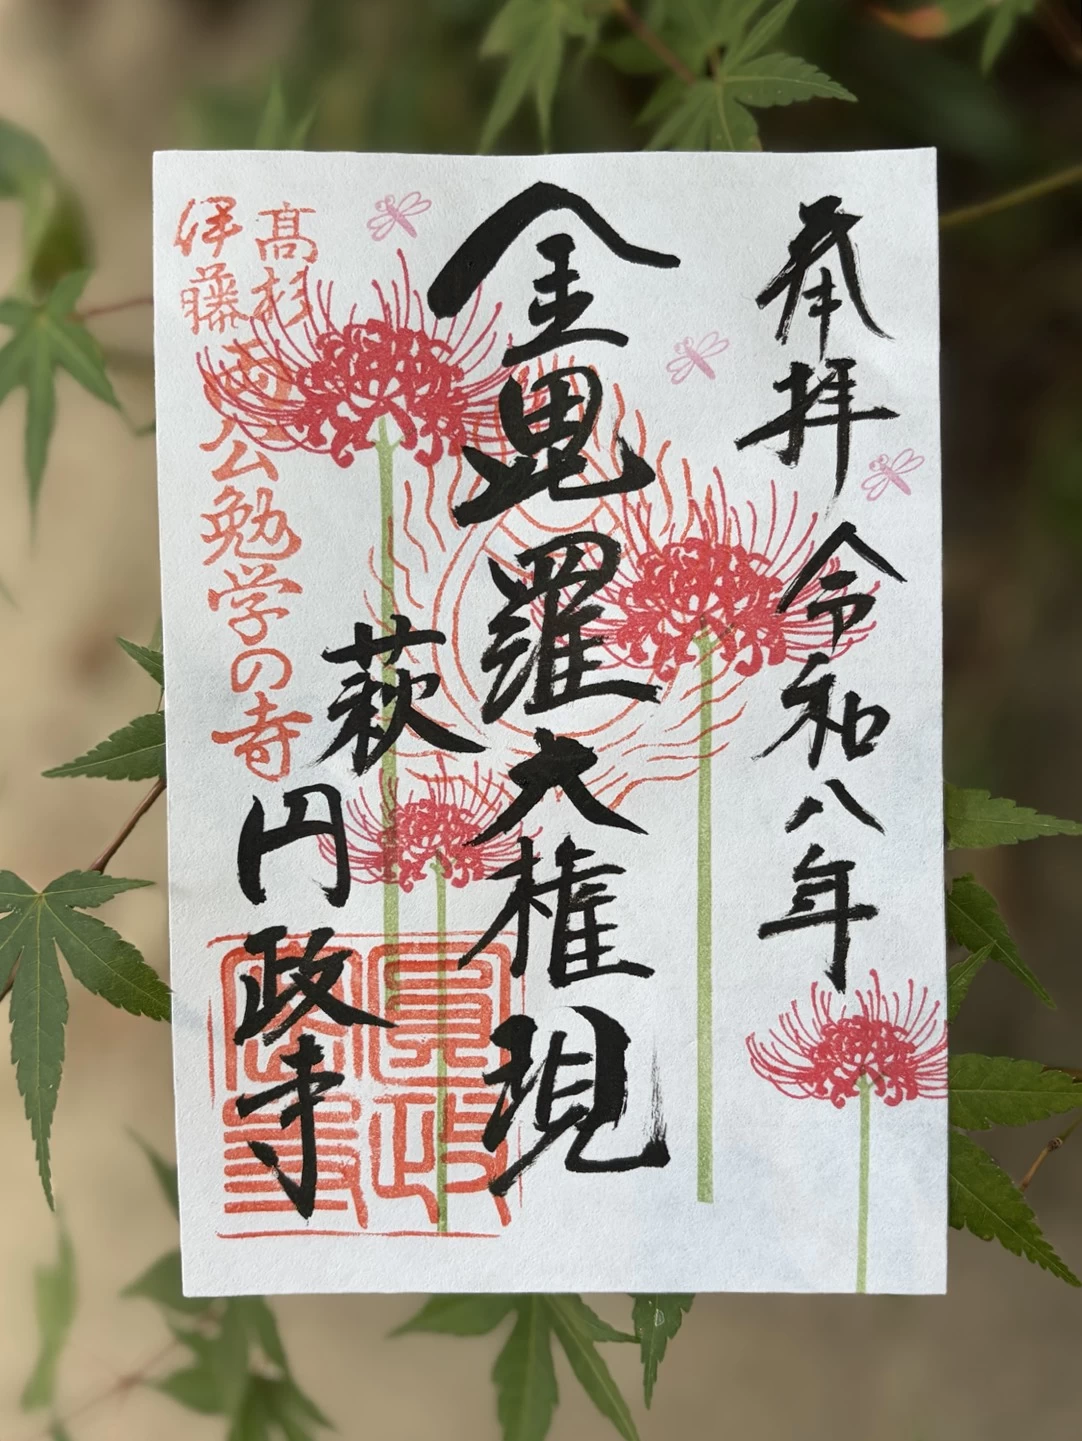 奉拝
令和八年
金毘羅大権現
萩
円政寺
高杉
伊藤
両公勉学の寺
圓政
寺